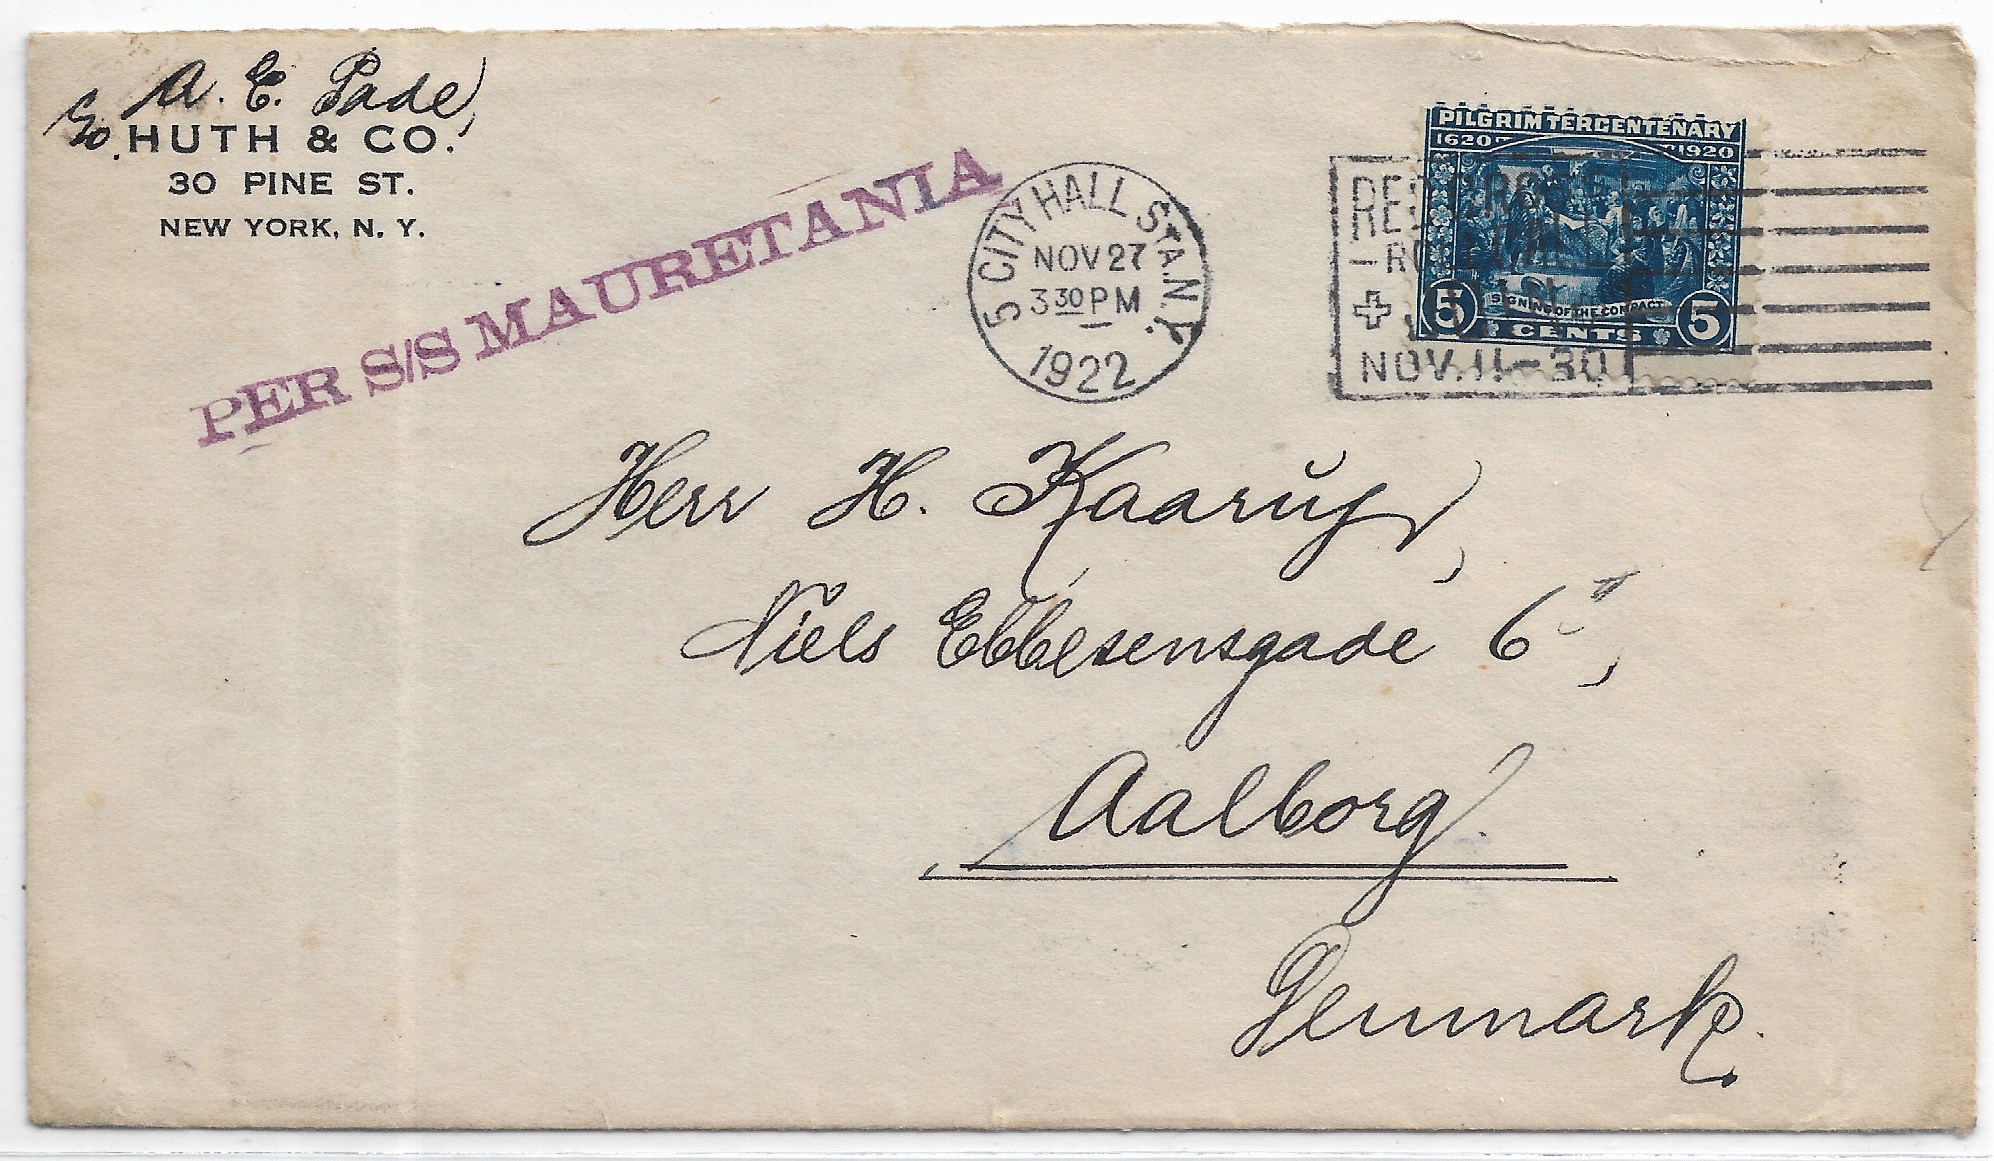 A. E. Pade,
c/o. HUTH & CO.
30 PINE ST.
NEW YORK, N. Y.
PER S/S MAURETANIA
5 CITY HALL STA. N.Y.
NOV 27
3 30 PM
1922
PILGRIM TERCENTENARY
1620 1920
SIGNING OF THE COMPACT
5 CENTS 5
RED CROSS
ROLL CALL
NOV. 11-30
Herr H. Kaarup,
Niels Ebbesensgade 6,
Aalborg.
Denmark.